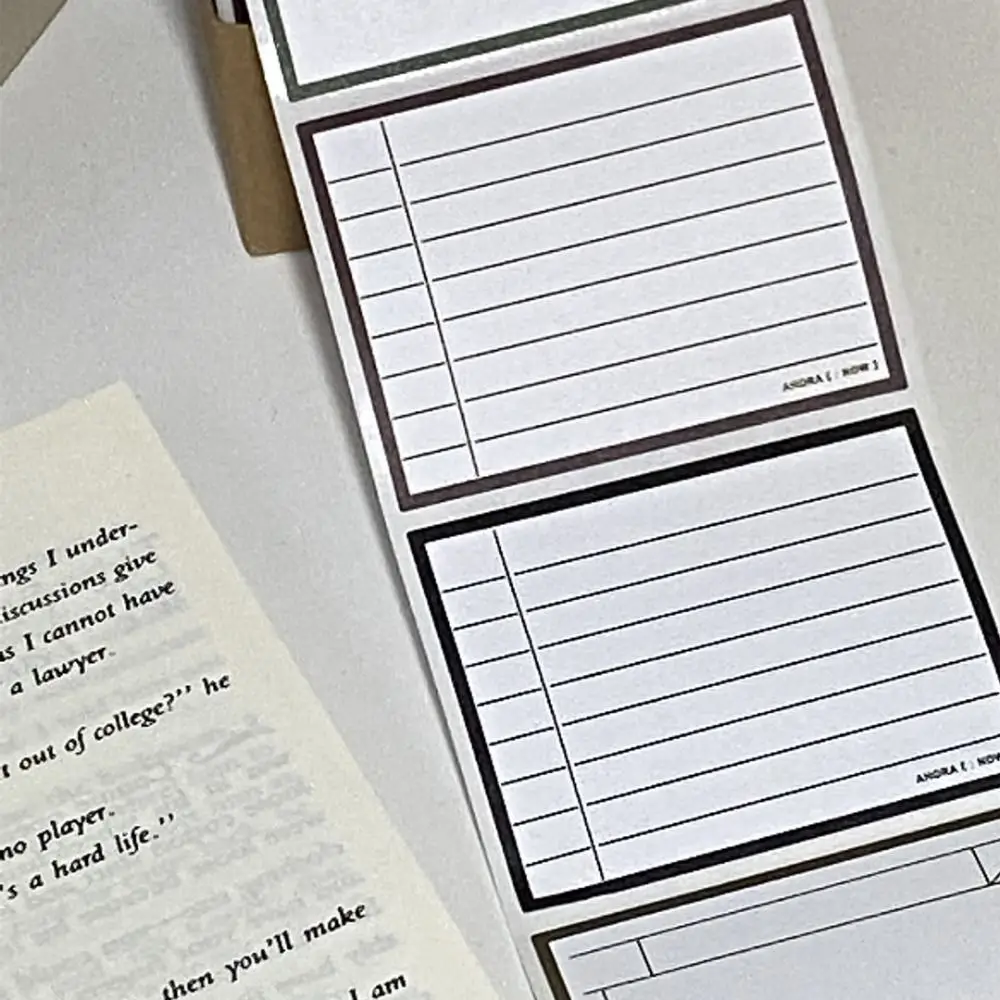 ANDRA [ : NOW ]
ANDRA [ : NOW
ngs I under-
iscussions give
as I cannot have
a lawyer.
t out of college?" he
no player.
's a hard life."
then you'll make
I am